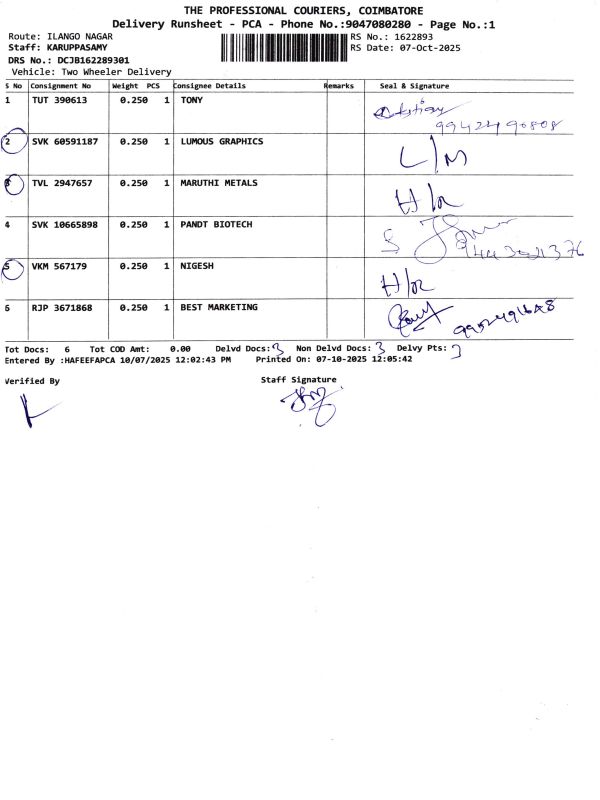 THE PROFESSIONAL COURIERS, COIMBATORE
Delivery Runsheet - PCA - Phone No.:9047080280 - Page No.:1
Route: ILANGO NAGAR RS No.: 1622893
Staff: KARUPPASAMY RS Date: 07-Oct-2025
DRS No.: DCJB162289301
Vehicle: Two Wheeler Delivery
S No Consignment No Weight PCS Consignee Details Remarks Seal & Signature
1 TUT 390613 0.250 1 TONY
9942490808
2 SVK 60591187 0.250 1 LUMOUS GRAPHICS
L/M
3 TVL 2947657 0.250 1 MARUTHI METALS
H/R
4 SVK 10665898 0.250 1 PANDT BIOTECH
5 VKM 567179 0.250 1 NIGESH
H/R
6 RJP 3671868 0.250 1 BEST MARKETING
Tot Docs: 6 Tot COD Amt: 0.00 Delvd Docs: 3 Non Delvd Docs: 3 Delvy Pts: 3
Entered By :HAFEEFAPCA 10/07/2025 12:02:43 PM Printed On: 07-10-2025 12:05:42
Verified By Staff Signature